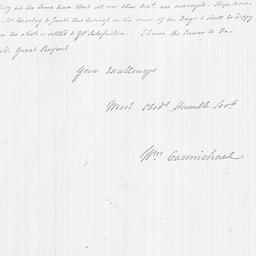 at the same time that all our other are arranged.
to finish this business in the course of ten days & shall be happy
the whole is settled to yr Satisfaction. I have the honor to be
Great Respect
Your Excellencys
Most Obedt. Humble Sert.
Wm. Carmichael